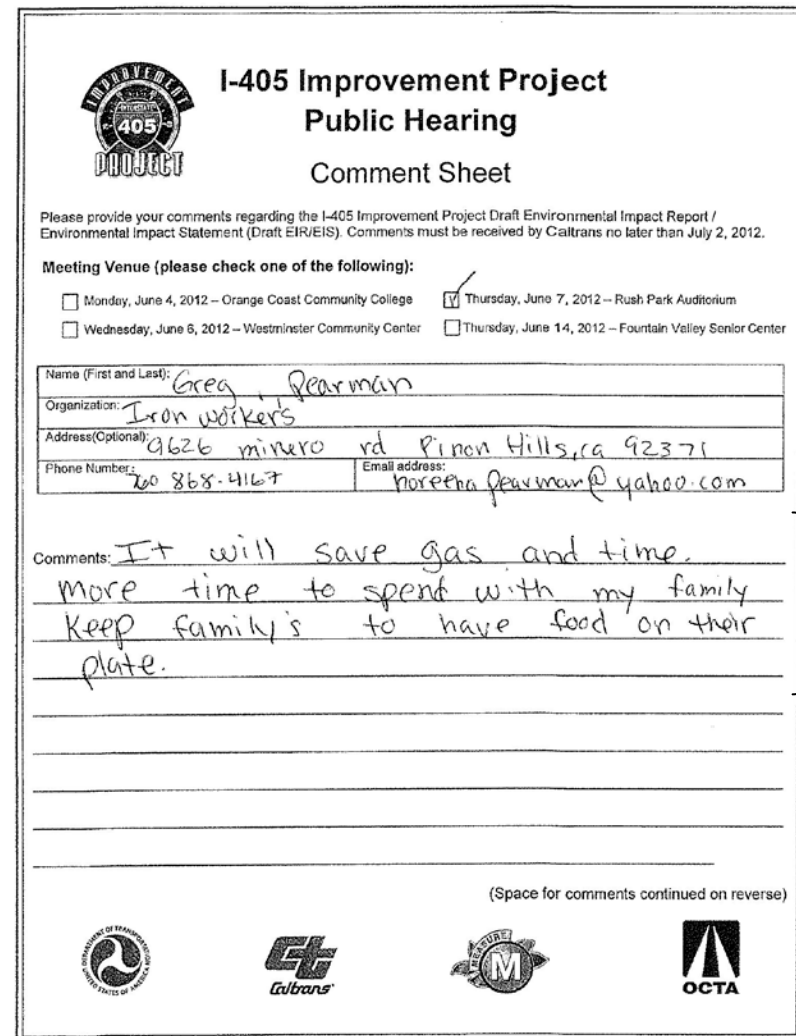 IMPROVEMENT
INTERSTATE
405
PROJECT
I-405 Improvement Project
Public Hearing
Comment Sheet
Please provide your comments regarding the I-405 Improvement Project Draft Environmental Impact Report /
Environmental Impact Statement (Draft EIR/EIS). Comments must be received by Caltrans no later than July 2, 2012.
Meeting Venue (please check one of the following):
Monday, June 4, 2012 – Orange Coast Community College
Thursday, June 7, 2012 – Rush Park Auditorium
Wednesday, June 6, 2012 – Westminster Community Center
Thursday, June 14, 2012 – Fountain Valley Senior Center
Name (First and Last): Greg, Pearman
Organization: Iron workers
Address(Optional): 9626 minero rd Pinon Hills, ca 92371
Phone Number: 760 868-4167
Email address: noreena pearman@yahoo.com
Comments: It will save gas and time.
more time to spend with my family
Keep family's to have food on their
plate.
(Space for comments continued on reverse)
DEPARTMENT OF TRANSPORTATION
UNITED STATES OF AMERICA
Caltrans
MEASURE
M
OCTA